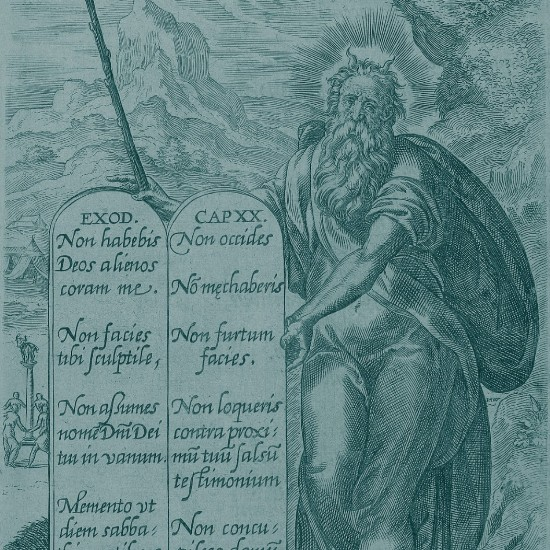 EXOD.
Non habebis
Deos alienos
coram me.
Non facies
tibi sculptile,
Non assumes
nomē Dñi Dei
tui in vanum.
Memento vt
diem sabba-
CAP XX.
Non occides
Nõ męchaberis
Non furtum
facies.
Non loqueris
contra proxi:
mū tuū falsū
testimonium
Non concu-